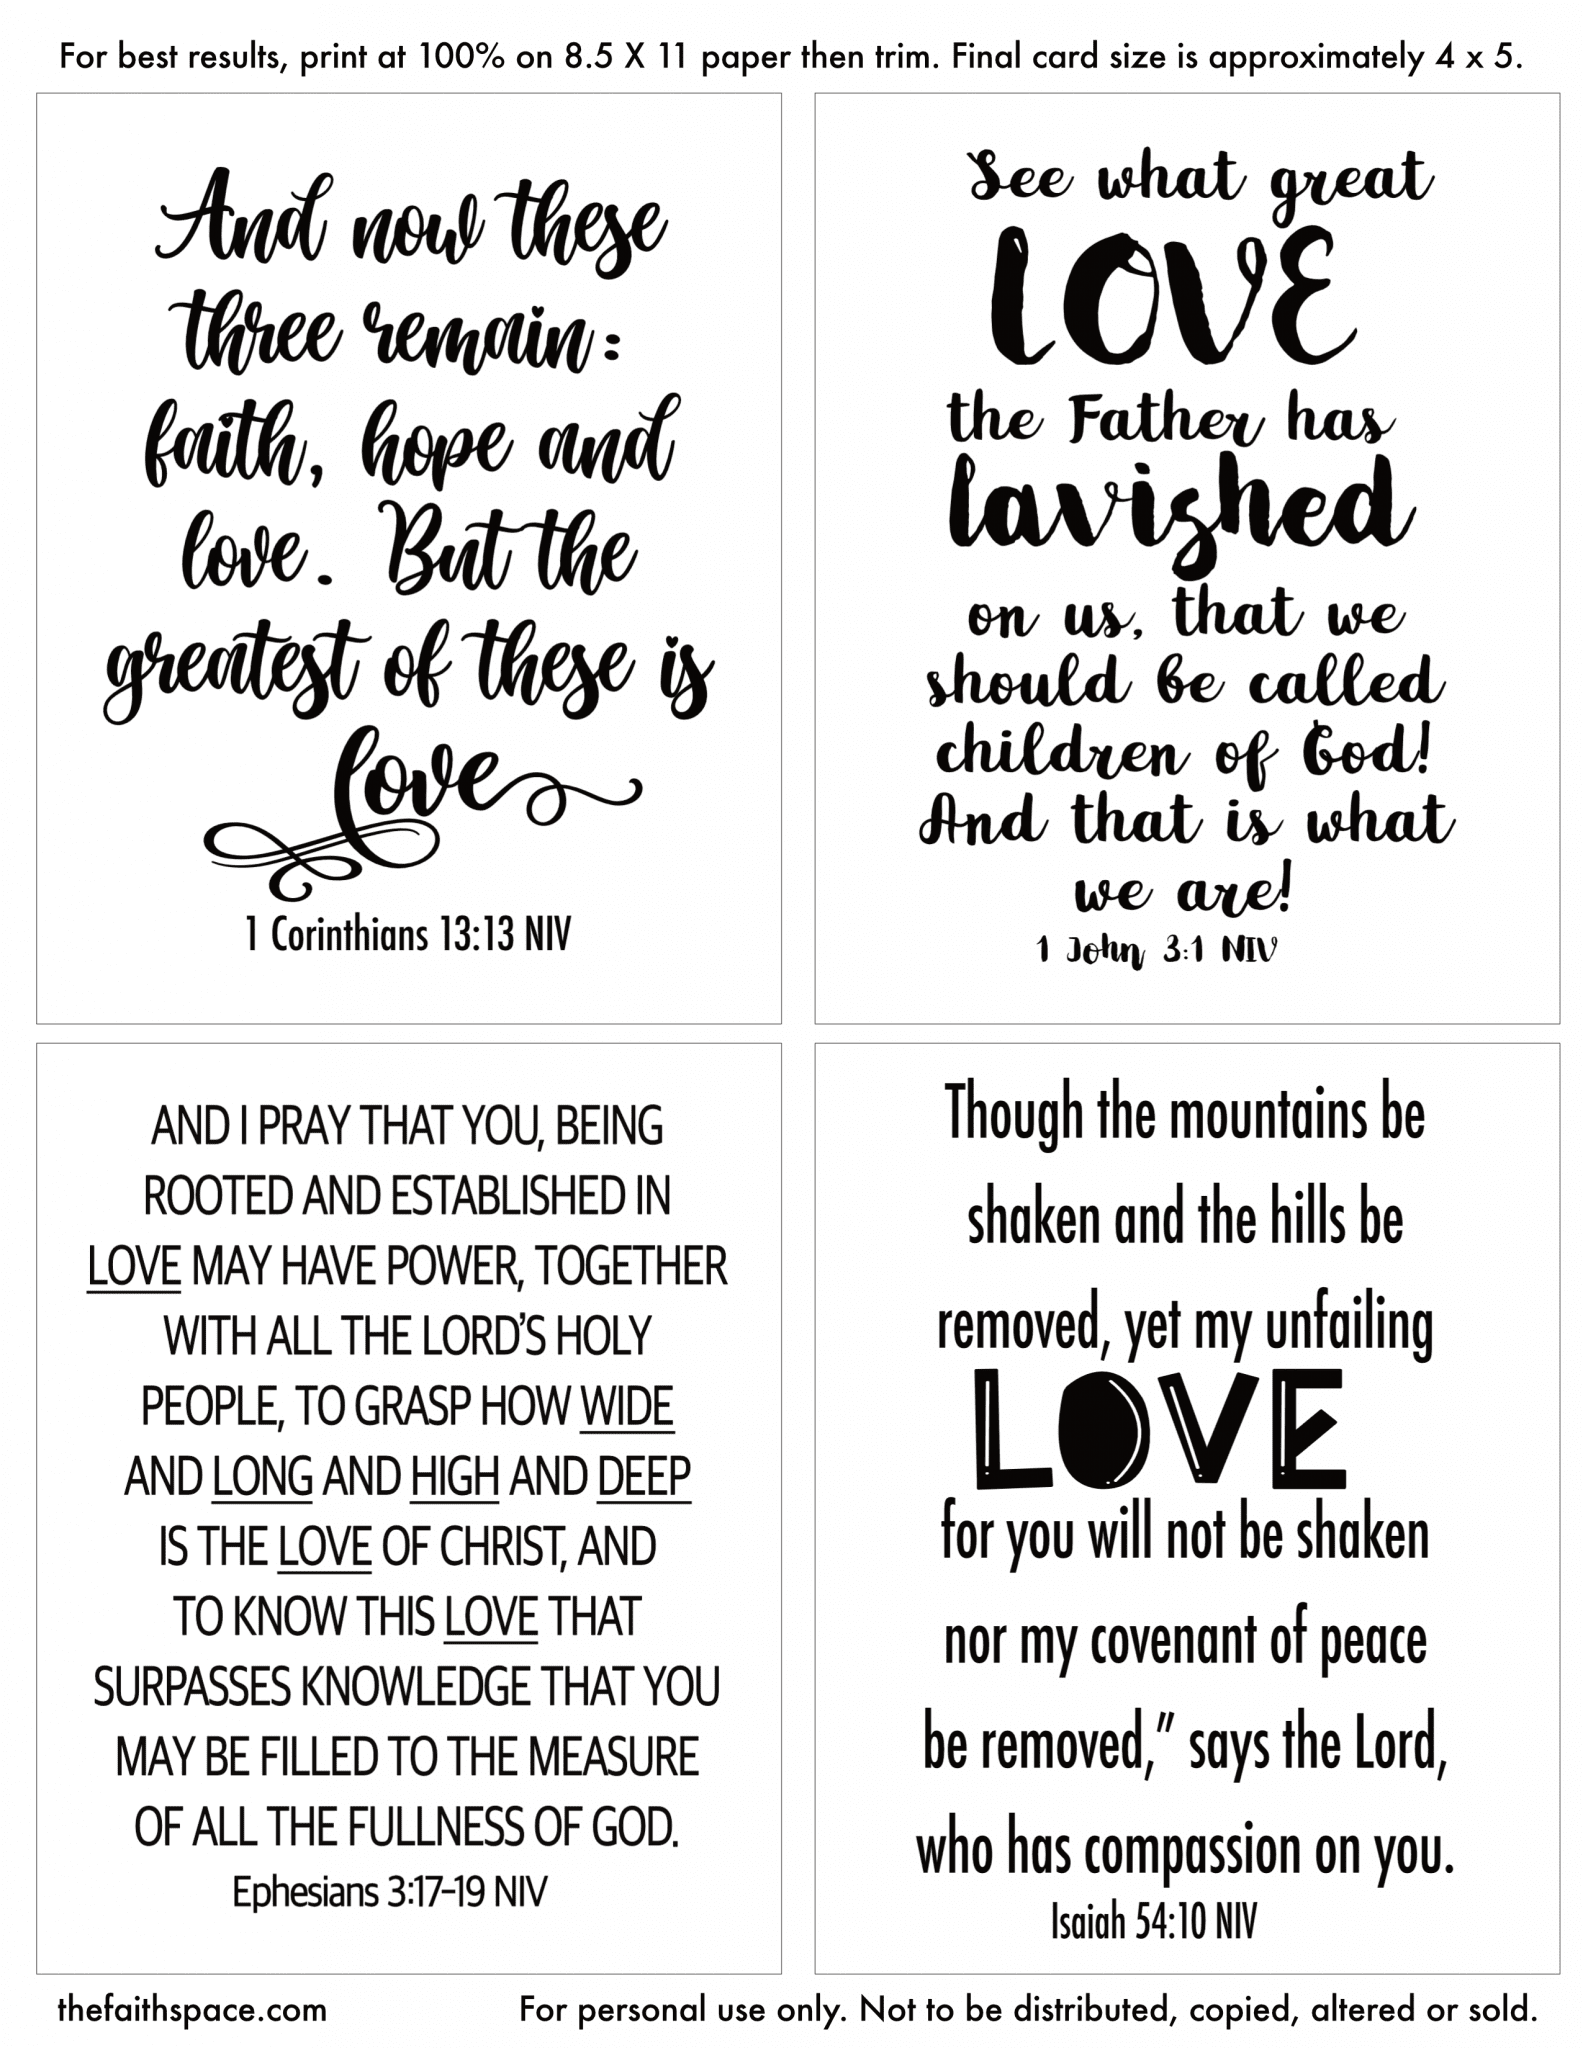 For best results, print at 100% on 8.5 X 11 paper then trim. Final card size is approximately 4 x 5.
And now these
three remain:
faith, hope and
love. But the
greatest of these is
love
1 Corinthians 13:13 NIV
See what great
LOVE
the Father has
lavished
on us, that we
should be called
children of God!
And that is what
we are!
1 John 3:1 NIV
AND I PRAY THAT YOU, BEING
ROOTED AND ESTABLISHED IN
LOVE MAY HAVE POWER, TOGETHER
WITH ALL THE LORD'S HOLY
PEOPLE, TO GRASP HOW WIDE
AND LONG AND HIGH AND DEEP
IS THE LOVE OF CHRIST, AND
TO KNOW THIS LOVE THAT
SURPASSES KNOWLEDGE THAT YOU
MAY BE FILLED TO THE MEASURE
OF ALL THE FULLNESS OF GOD.
Ephesians 3:17-19 NIV
Though the mountains be
shaken and the hills be
removed, yet my unfailing
LOVE
for you will not be shaken
nor my covenant of peace
be removed,” says the Lord,
who has compassion on you.
Isaiah 54:10 NIV
thefaithspace.com
For personal use only. Not to be distributed, copied, altered or sold.